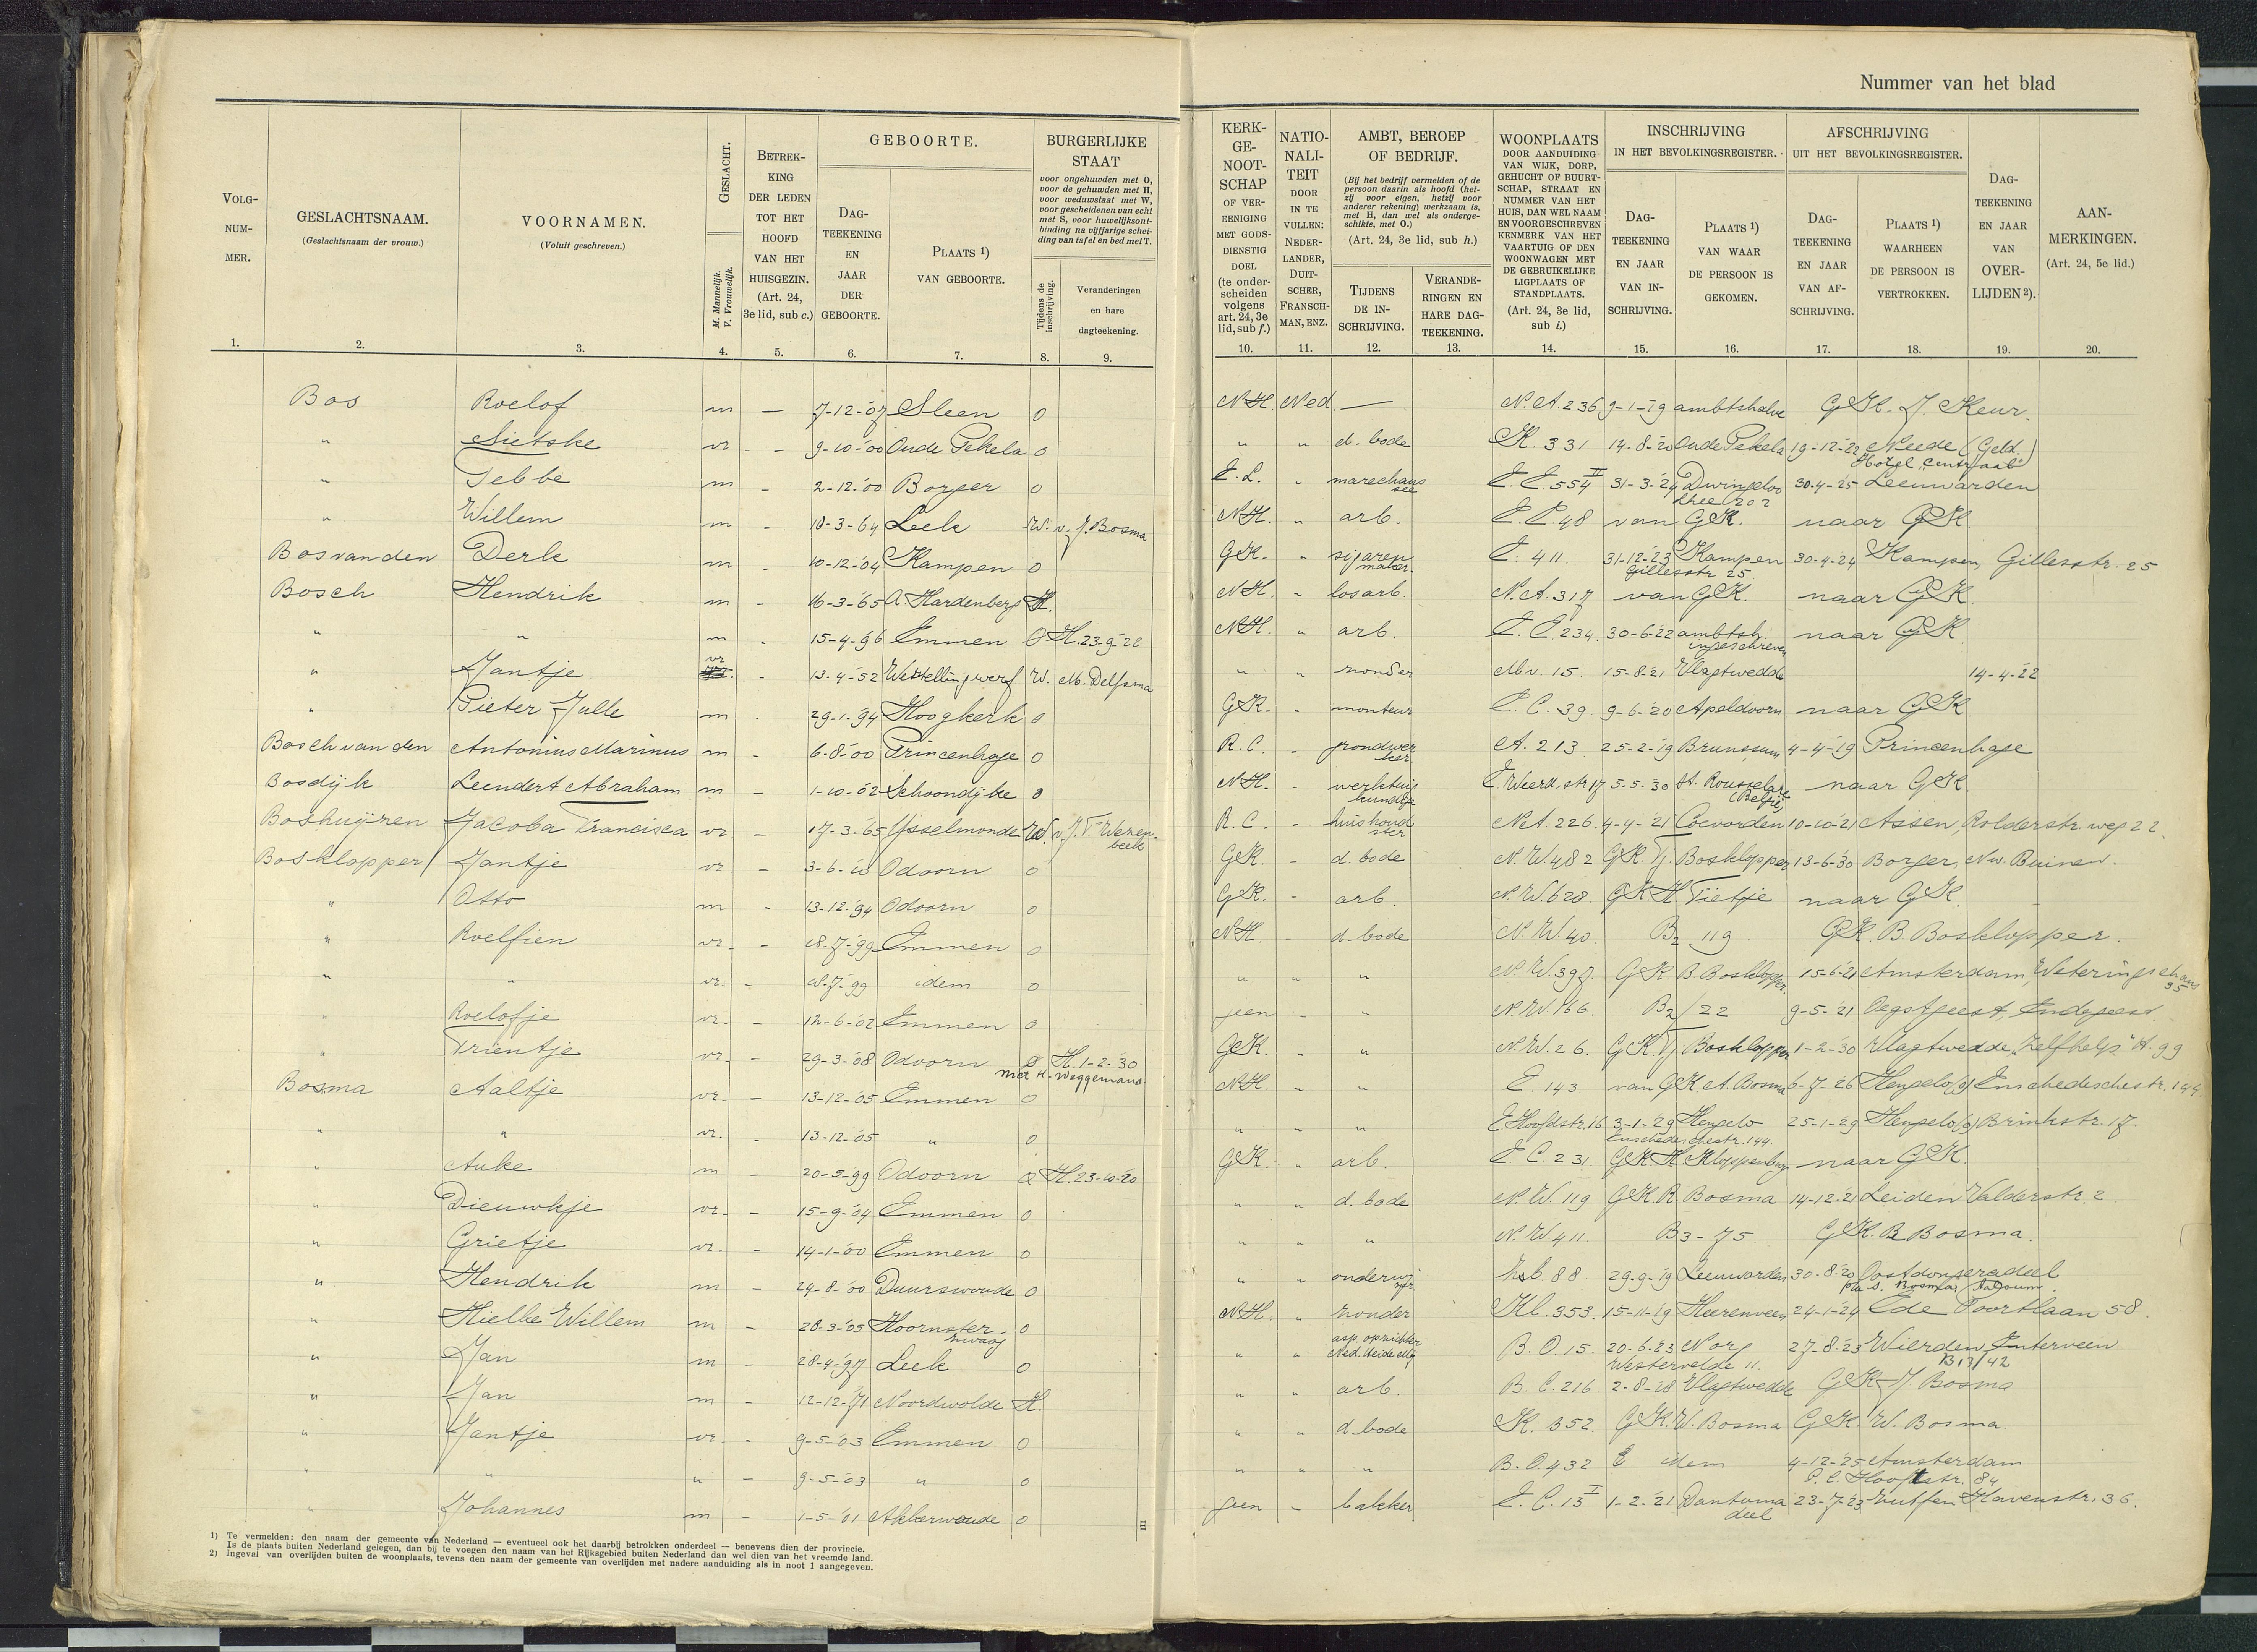 Nummer van het blad
VOLG-NUM-MER.
GESLACHTSNAAM. (Geslachtsnaam der vrouw.)
VOORNAMEN. (Voluit geschreven.)
GESLACHT. M. Mannelijk. V. Vrouwelijk.
BETREK-KING DER LEDEN TOT HET HOOFD VAN HET HUISGEZIN. (Art. 24, 3e lid, sub c.)
GEBOORTE.
DAG-TEEKENING EN JAAR DER GEBOORTE.
PLAATS 1) VAN GEBOORTE.
BURGERLIJKE STAAT
voor ongehuwden met O, voor de gehuwden met H, voor weduwstaat met W, voor gescheidenen van echt met S, voor huwelijksont-binding na vijfjarige schei-ding van tafel en bed met T.
Tijdens de inschrijving.
Veranderingen en hare dagteekening.
KERK-GE-NOOT-SCHAP OF VER-EENIGING MET GODS-DIENSTIG DOEL (te onder-scheiden volgens art. 24, 3e lid, sub f.)
NATIO-NALI-TEIT DOOR IN TE VULLEN: NEDER-LANDER, DUIT-SCHER, FRANSCH-MAN, ENZ.
AMBT, BEROEP OF BEDRIJF.
(Bij het bedrijf vermelden of de persoon daarin als hoofd (het-zij voor eigen, hetzij voor anderer rekening) werkzaam is, met H, dan wel als onderge-schikte, met O.)
(Art. 24, 3e lid, sub h.)
TIJDENS DE IN-SCHRIJVING.
VERANDE-RINGEN EN HARE DAG-TEEKENING.
WOONPLAATS DOOR AANDUIDING VAN WIJK, DORP, GEHUCHT OF BUURT-SCHAP, STRAAT EN NUMMER VAN HET HUIS, DAN WEL NAAM EN VOORGESCHREVEN KENMERK VAN HET VAARTUIG OF DEN WOONWAGEN MET DE GEBRUIKELIJKE LIGPLAATS OF STANDPLAATS. (Art. 24, 3e lid, sub i.)
INSCHRIJVING IN HET BEVOLKINGSREGISTER.
DAG-TEEKENING EN JAAR VAN IN-SCHRIJVING.
PLAATS 1) VAN WAAR DE PERSOON IS GEKOMEN.
AFSCHRIJVING UIT HET BEVOLKINGSREGISTER.
DAG-TEEKENING EN JAAR VAN AF-SCHRIJVING.
PLAATS 1) WAARHEEN DE PERSOON IS VERTROKKEN.
DAG-TEEKENING EN JAAR VAN OVER-LIJDEN 2).
AAN-MERKINGEN. (Art. 24, 5e lid.)
1. 2. 3. 4. 5. 6. 7. 8. 9. 10. 11. 12. 13. 14. 15. 16. 17. 18. 19. 20.
Bos Roelof m — 7-12-'07 Sleen O N.H. Ned. — N.A. 236 9-1-'19 ambtshalve G.K. J. Keur.
" Sietske vr - - 9-10-'00 Oude Pekela O " " d. bode K. 331 14-8-'20 Oude Pekela 19-12-22 Neede (Geld.) Hotel "Centraal"
" Tebbe m - 2-12-'00 Borger O E.L. " marechaussee E.E. 554 II 31-3-'24 Dwingeloo Lhee 202 30-4-25 Leeuwarden
" Willem m - 10-3-'64 Leek W. v. J. Bosma N.H. " arb. E.E. 48 van G.K. naar G.K.
Bos van den Derk m - 10-12-'04 Kampen O G.K. " sigaren maker. E. 411. 31-12-'23 Kampen Gillesstr 25 30-4-24 Kampen, Gillesstr. 25
Bosch Hendrik m - 16-3-'65 A. Hardenberg H. N.H. " los arb. N.A. 317 van G.K. naar G.K.
" " m - 15-4-96 Emmen O H. 23-9-'22 N.H. " arb. E.E. 234. 30-6-'22 ambtsh. ingeschreven naar G.K.
" Jantje vr - 13-4-52 Weststellingwerf W. M. Delfsma " " zonder M.v. 15. 15-8-'21 Vlagtwedde 14-4-'22
" Pieter Julle m - 29-1-'94 Hoogkerk O G.K. - monteur E.C. 39. 9-6-'20 Apeldoorn naar G.K.
Bosch van den Antonius Marinus m - 6-8-'00 Princenhage O R.C. - grondwerker A. 213 25-2-'19 Brunssum 4-4-'19 Princenhage
Bosdijk Leendert Abraham m - 1-10-'02 Schoondijke O N.H. - werktuigkundige E. Weerd. str 17 5-5-30 St. Rousselare (België) naar G.K.
Boshuijzen Jacoba Francisca vr - 17-3-'65 IJsselmonde W. v. J. V. Wezenbeek R.C. - huishoudster N.A. 226. 4-4-'21 Coevorden 10-10-21 Assen, Rolderstr. weg 22.
Bosklopper Jantje vr - 3-6-'10 Odoorn O G.K. - d. bode N.W. 482 G.K. Tj. Bosklopper 13-6-'30 Borger, Nw. Buinen.
" Otto m - 13-12-'94 Odoorn O G.K. - arb. N.W. 628. G.K. H Tietje naar G.K.
" Roelfien vr. - 18-7-'99 Emmen O N.H. - d. bode N.W. 40. B2 119 G.K. B. Bosklopper.
" " vr. - 18-7-'99 idem O " " " N.W. 397. G.K B. Bosklopper. 15-6-'21 Amsterdam, Weteringschans 95
" Roelofje vr. - 12-6-'02 Emmen O geen - " N.W. 166. B2/22 9-5-'21 Oegstgeest, Endegeest.
" Trientje vr. - 29-3-'08 Odoorn O H. 1-2-'30 met H. Weggemans G.K. " " N.W. 26. G.K. Tj Bosklopper 1-2-30 Vlagtwedde, "Zelfhelp" H. 99
Bosma Aaltje vr. - 13-12-'05 Emmen O N.H. " " E. 143 van G.K. A. Bosma 6-7-'26 Hengelo (o) Enschedeschestr. 144.
" " vr. - 13-12-'05 " O " " " E. Hoofdstr. 16 3-1-'29 Hengelo Enschedeschestr. 144. 25-1-29 Hengelo (o) Brinkstr. 17.
" Auke m - 20-5-'99 Odoorn O H. 23-10-'20 G.K. " arb. E.C. 231. G.K. H Kloppenburg naar G.K.
" Dieuwkje vr. - 15-9-'04 Emmen O " " d. bode N.W. 119 G.K. R. Bosma 14-12-'21 Leiden Valderstr. 2
" Grietje vr. - 14-1-'00 Emmen O " " " N.W. 411. B3-75 G.K. R Bosma.
" Hendrik m - 24-8-'00 Duurswoude O " " onderwijzer 88 29-9-'19 Leeuwarden 30-8-'20 Oostdongeradeel p/a S. Bosma,
" Hielke Willem m - 28-3-'05 Hoornsterzwaag O N.H. " zonder Kl. 353. 15-11-'19 Heerenveen 24-1-'24 Ede Poortlaan 58.
" Jan m - 28-4-'97 Leek O " " asp. opzichter Ned. Heide Mij B.O. 15. 20-6-'23 Norg Westervelde 11. 27-8-'23 Wierden, Enterveen B 13/42
" Jan m - 12-12-'71 Noordwolde H. " " arb. B.C. 216 2-8-'18 Vlagtwedde G.K. J. Bosma
" Jantje vr. - 9-5-'03 Emmen O " " d. bode K. 352. G.K. W. Bosma G.K. W. Bosma.
" " " - 9-5-'03 " O " " " B.O. 432 idem 4-12-'25 Amsterdam P.C. Hooftstr. 84
" Johannes m - 1-5-'01 Akkerwoude O geen - bakker E.C. 13 I 1-2-'21 Dantumadeel 23-7-'23 Zutfen Havenstr. 36.
1) Te vermelden: den naam der gemeente van Nederland — eventueel ook het daarbij betrokken onderdeel — benevens dien der provincie.
Is de plaats buiten Nederland gelegen, dan bij te voegen den naam van het Rijksgebied buiten Nederland dan wel dien van het vreemde land.
2) Ingeval van overlijden buiten de woonplaats, tevens den naam der gemeente van overlijden met nadere aanduiding als in noot 1 aangegeven.
III